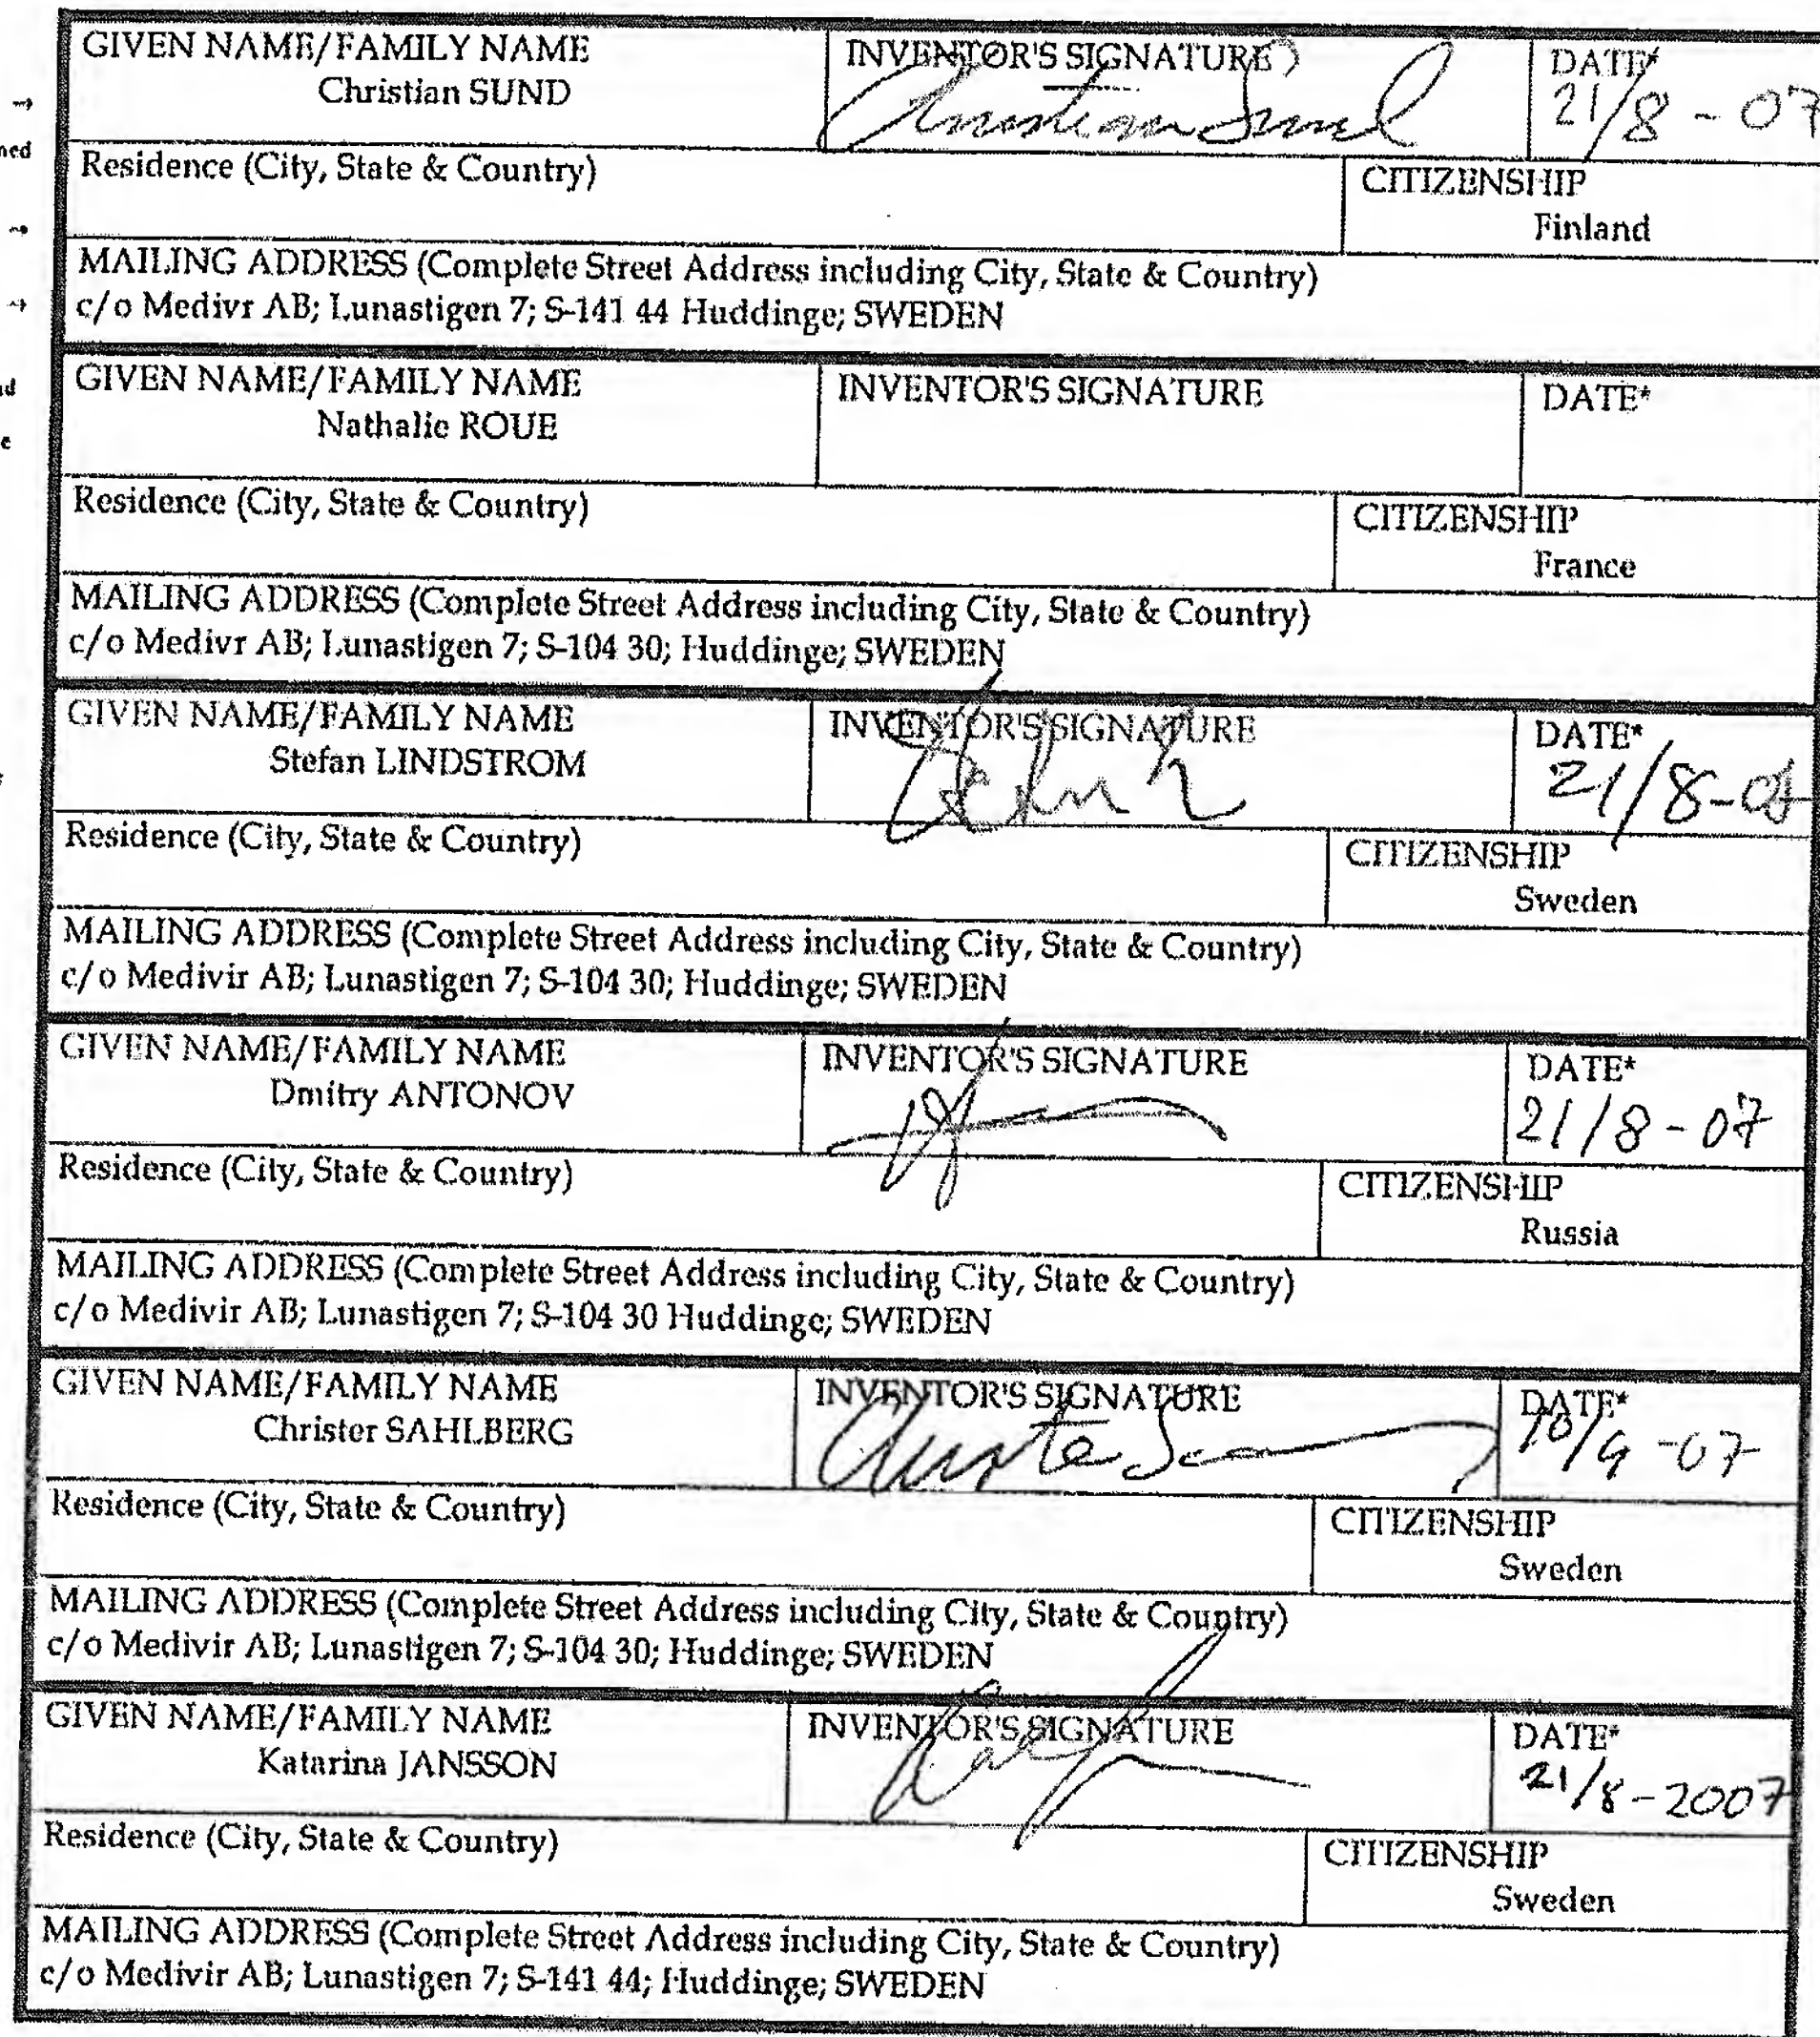 GIVEN NAME/FAMILY NAME INVENTOR'S SIGNATURE DATE*
Christian SUND Christian Sund 21/8 - 07
Residence (City, State & Country) CITIZENSHIP
Finland
MAILING ADDRESS (Complete Street Address including City, State & Country)
c/o Medivr AB; Lunastigen 7; S-141 44 Huddinge; SWEDEN
GIVEN NAME/FAMILY NAME INVENTOR'S SIGNATURE DATE*
Nathalie ROUE
Residence (City, State & Country) CITIZENSHIP
France
MAILING ADDRESS (Complete Street Address including City, State & Country)
c/o Medivr AB; Lunastigen 7; S-104 30; Huddinge; SWEDEN
GIVEN NAME/FAMILY NAME INVENTOR'S SIGNATURE DATE*
Stefan LINDSTROM 21/8-
Residence (City, State & Country) CITIZENSHIP
Sweden
MAILING ADDRESS (Complete Street Address including City, State & Country)
c/o Medivir AB; Lunastigen 7; S-104 30; Huddinge; SWEDEN
GIVEN NAME/FAMILY NAME INVENTOR'S SIGNATURE DATE*
Dmitry ANTONOV 21/8 - 07
Residence (City, State & Country) CITIZENSHIP
Russia
MAILING ADDRESS (Complete Street Address including City, State & Country)
c/o Medivir AB; Lunastigen 7; S-104 30 Huddinge; SWEDEN
GIVEN NAME/FAMILY NAME INVENTOR'S SIGNATURE DATE*
Christer SAHLBERG 10/9 -07
Residence (City, State & Country) CITIZENSHIP
Sweden
MAILING ADDRESS (Complete Street Address including City, State & Country)
c/o Medivir AB; Lunastigen 7; S-104 30; Huddinge; SWEDEN
GIVEN NAME/FAMILY NAME INVENTOR'S SIGNATURE DATE*
Katarina JANSSON 21/8 - 2007
Residence (City, State & Country) CITIZENSHIP
Sweden
MAILING ADDRESS (Complete Street Address including City, State & Country)
c/o Medivir AB; Lunastigen 7; S-141 44; Huddinge; SWEDEN